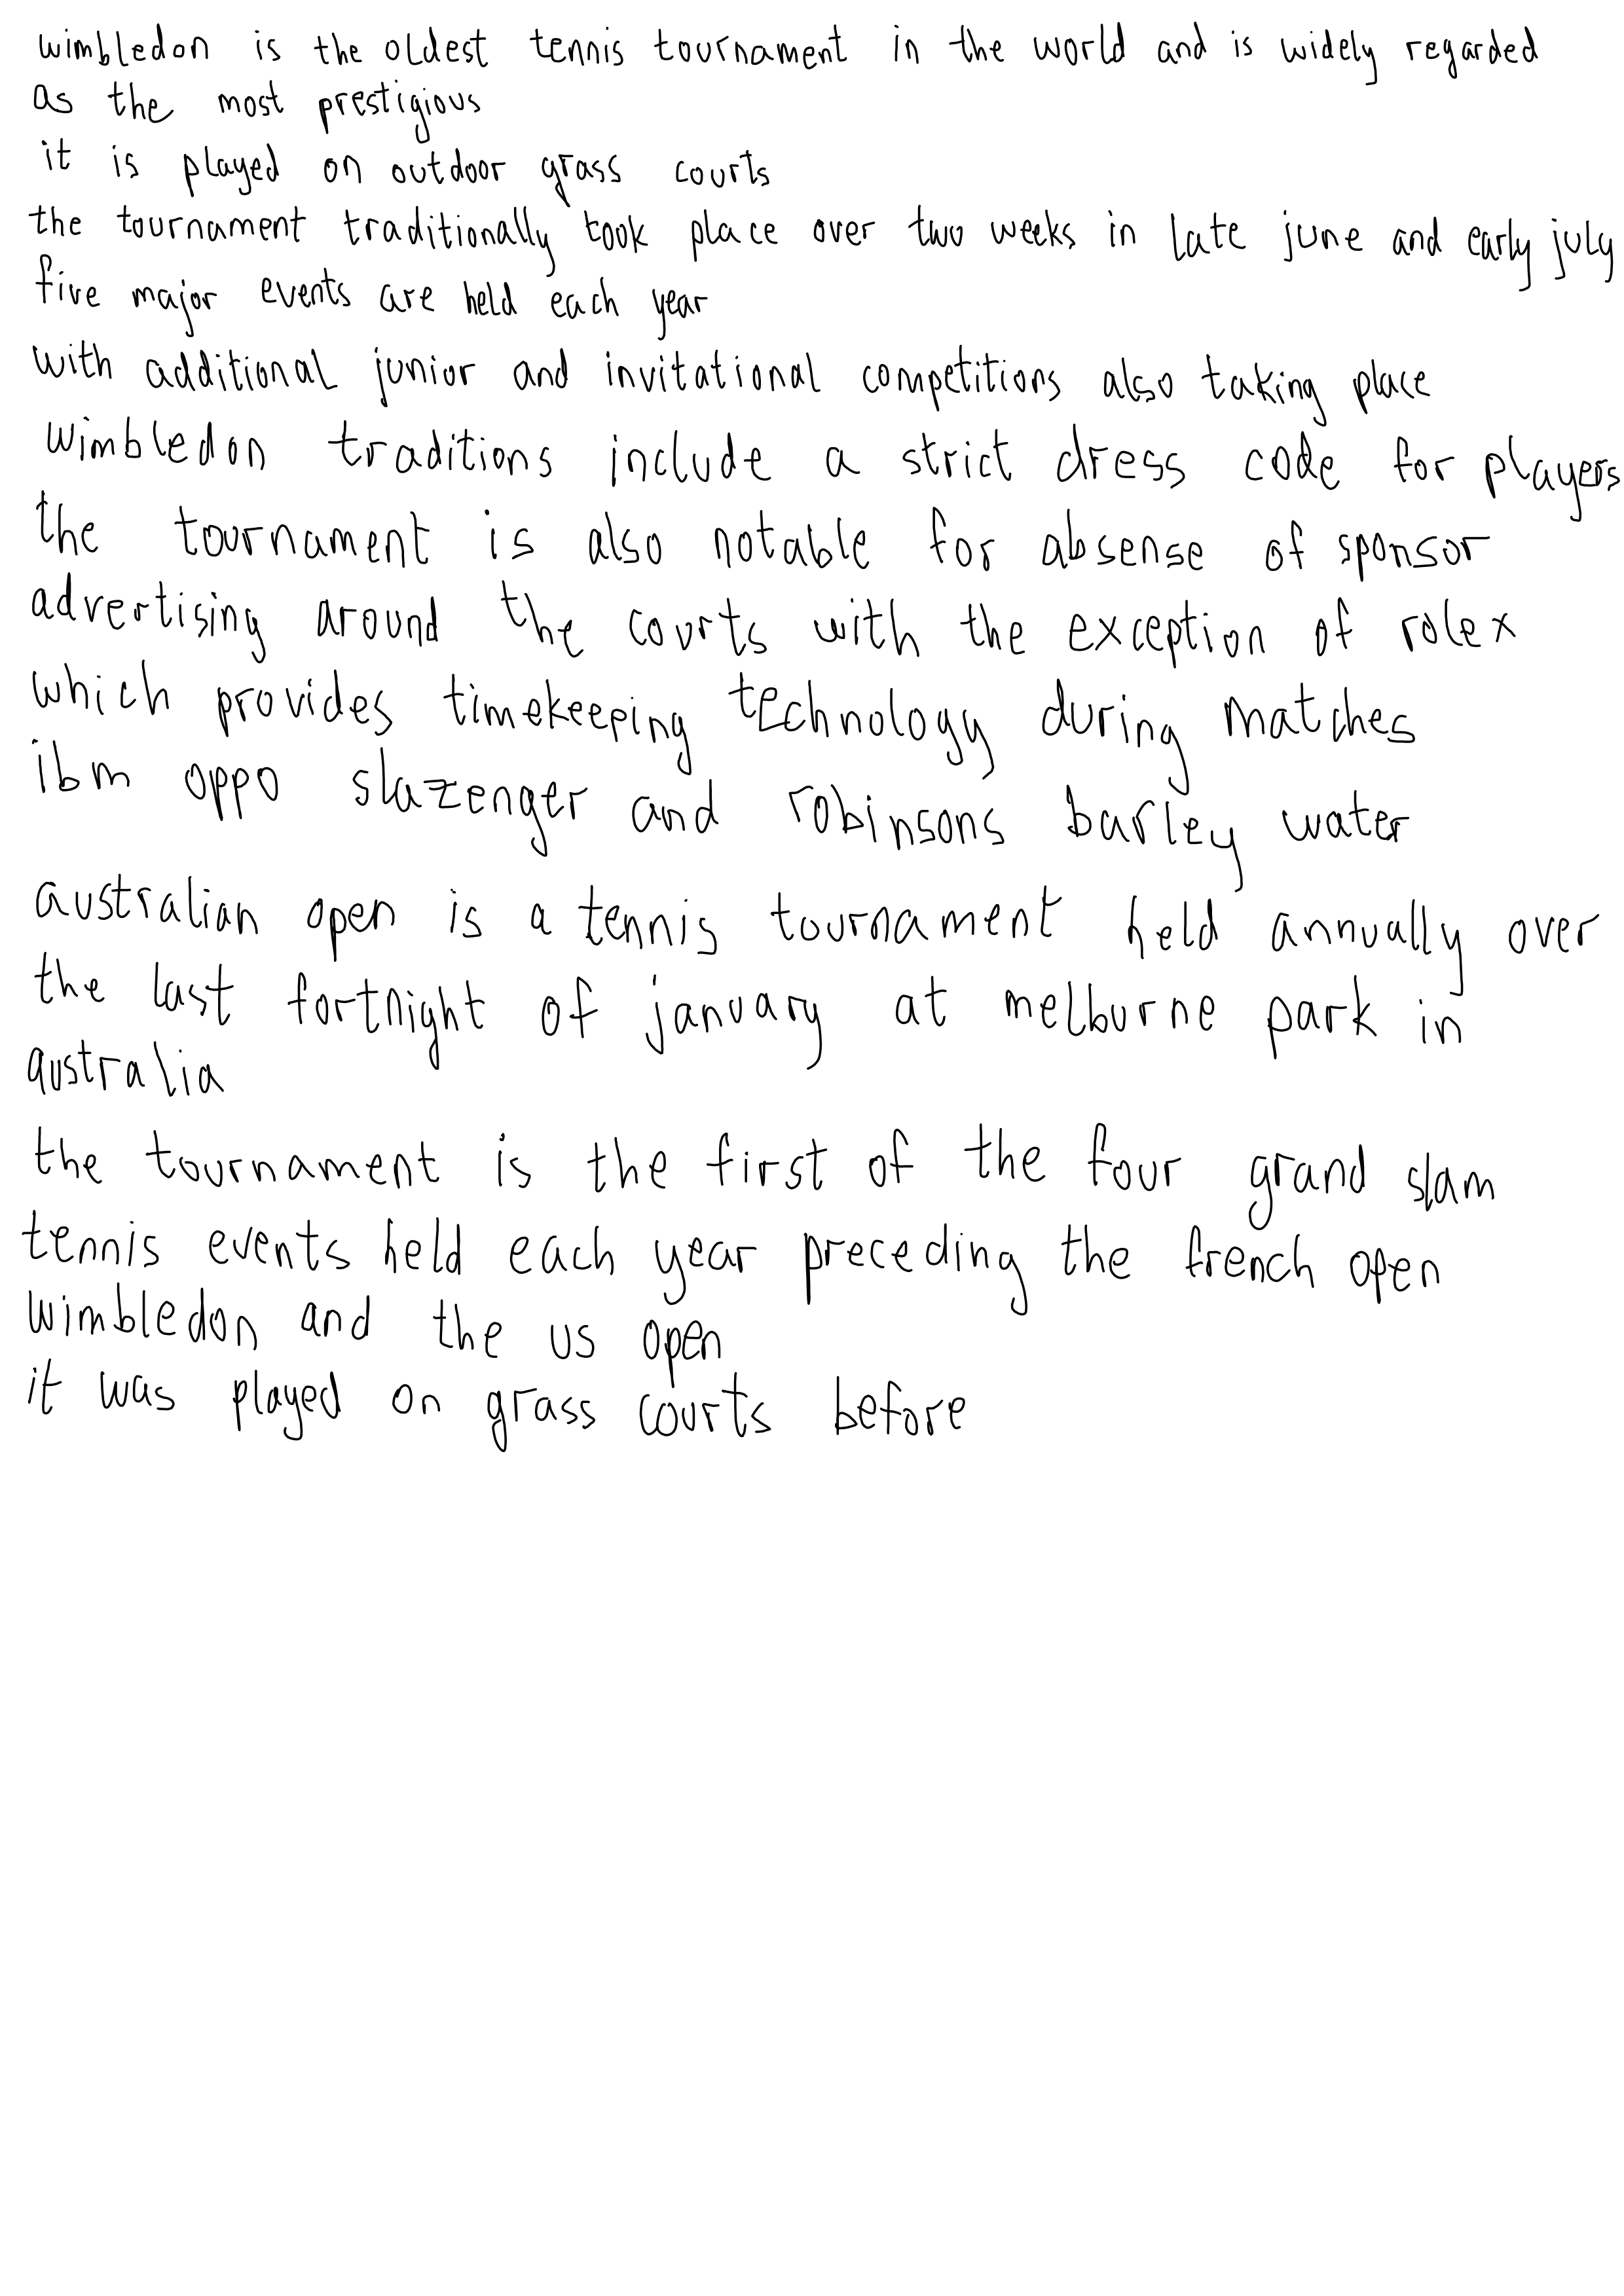 wimbledon is the oldest tennis tournament in the world and is widely regarded
as the most prestigious
it is played on outdoor grass courts
the tournament traditionally took place over two weeks in late june and early july
five major events are held each year
with additional junior and invitational competitions also taking place
wimbledon traditions include a strict dress code for players
the tournament is also notable for absense of sponsor
advertising around the courts with the exception of rolex
which provides timekeeping technology during matches
ibm oppo slazenger and robinsons barley water
australian open is a tennis tournament held annually over
the last fortnight of january at melburne park in
australia
the tournament is the first of the four grand slam
tennis events held each year preceding the french open
wimbledon and the us open
it was played on grass courts before